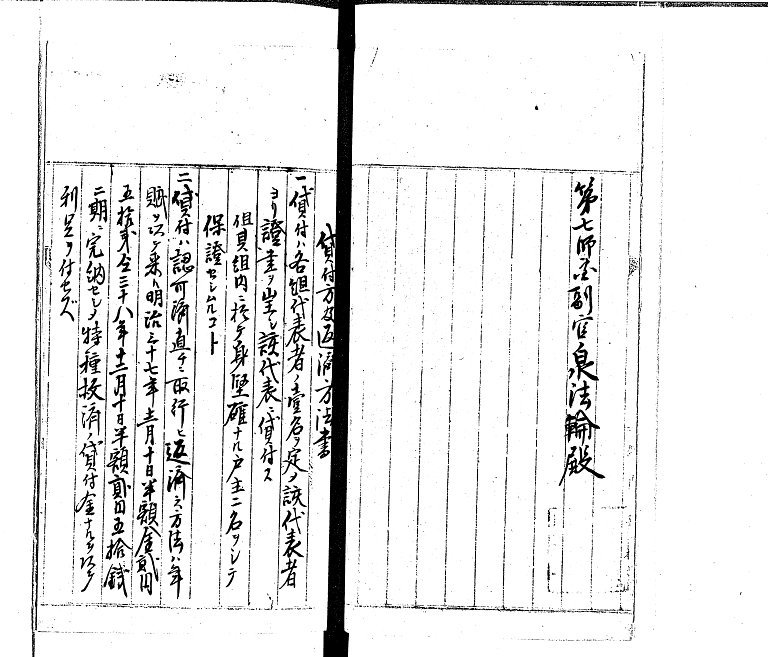 第七師団副官泉法輪殿
貸付方及返済方法書
一貸付ハ各組代表者ノ壹名ヲ定メ該代表者
ヨリ證書ヲ出シ該代表ニ貸付ス
但其組内ニ於ケ身堅確ナル戸主二名ヲシテ
保證セシムルコト
二貸付ハ認可済直チニ取行ヒ返済ノ方法ハ年
賦ヲ以テ来ル明治三十七年十二月十日半額金貳円
五拾銭仝三十八年十二月十日半額貳円五拾銭
二期ニ完納セシメ特種救済ノ貸付金ナルヲ以テ
利足ヲ付セズ